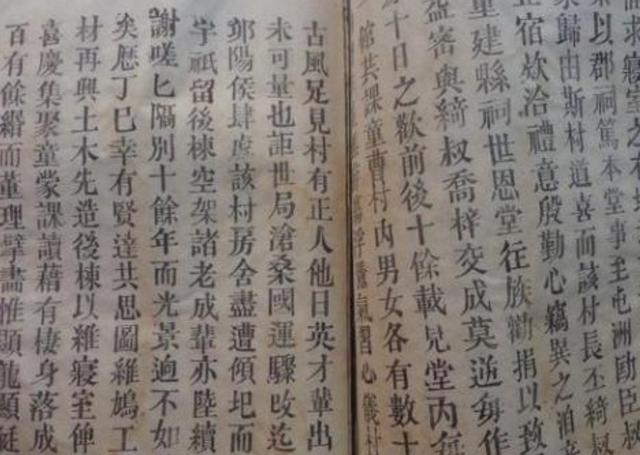 求寢室之
叅以郡祠篤本堂事至屯洲勖臣叔
家歸由斯村道喜而該村長丕綺叔
宿欤洽禮意殷勤心竊異之洎
重建縣祠世恩堂往族勸捐以致
益審與綺叔喬梓交成莫逝每作
十日之歡前後十餘載見堂內
館共課童曹村內男女各有數十
氣習心儀村
古風足見村有正人他日英才輩出
未可量也詎世局滄桑國運驟改迄
鄧陽侯肆虐該村房舍盡遭傾圯而
宇祇留後棟空架諸老成輩亦陸續
謝嗟匕隔別十餘年而光景逈不如
矣歷丁巳幸有賢達共思圖維鳩工
材再興土木先造後棟以維寢室俾
喜慶集聚童蒙課讀藉有棲身落成
百有餘緡而董理擘畫惟顕龍顕廷